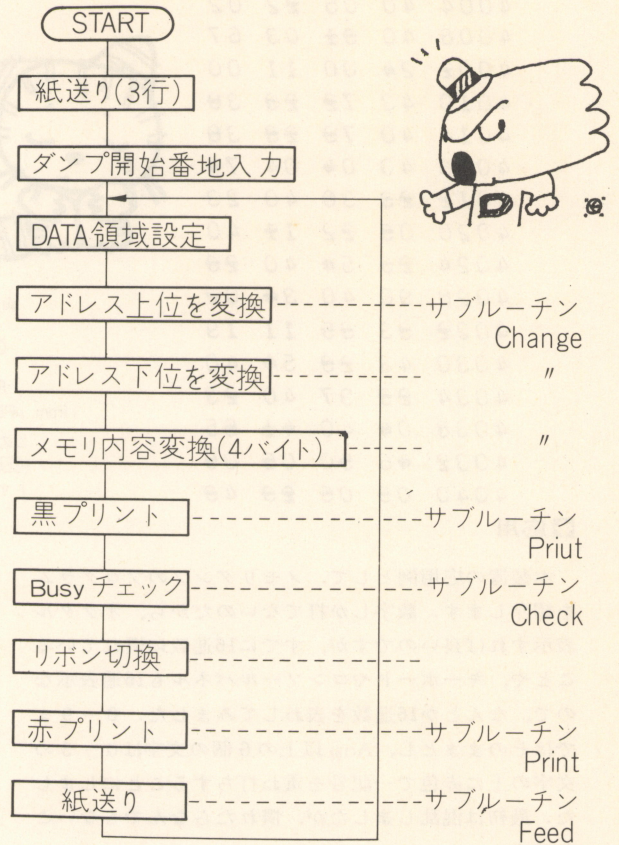 START
紙送り(3行)
ダンプ開始番地入力
DATA領域設定
アドレス上位を変換
サブルーチン
Change
アドレス下位を変換
〃
メモリ内容変換(4バイト)
〃
黒プリント
サブルーチン
Priut
Busy チェック
サブルーチン
Check
リボン切換
赤プリント
サブルーチン
Print
紙送り
サブルーチン
Feed